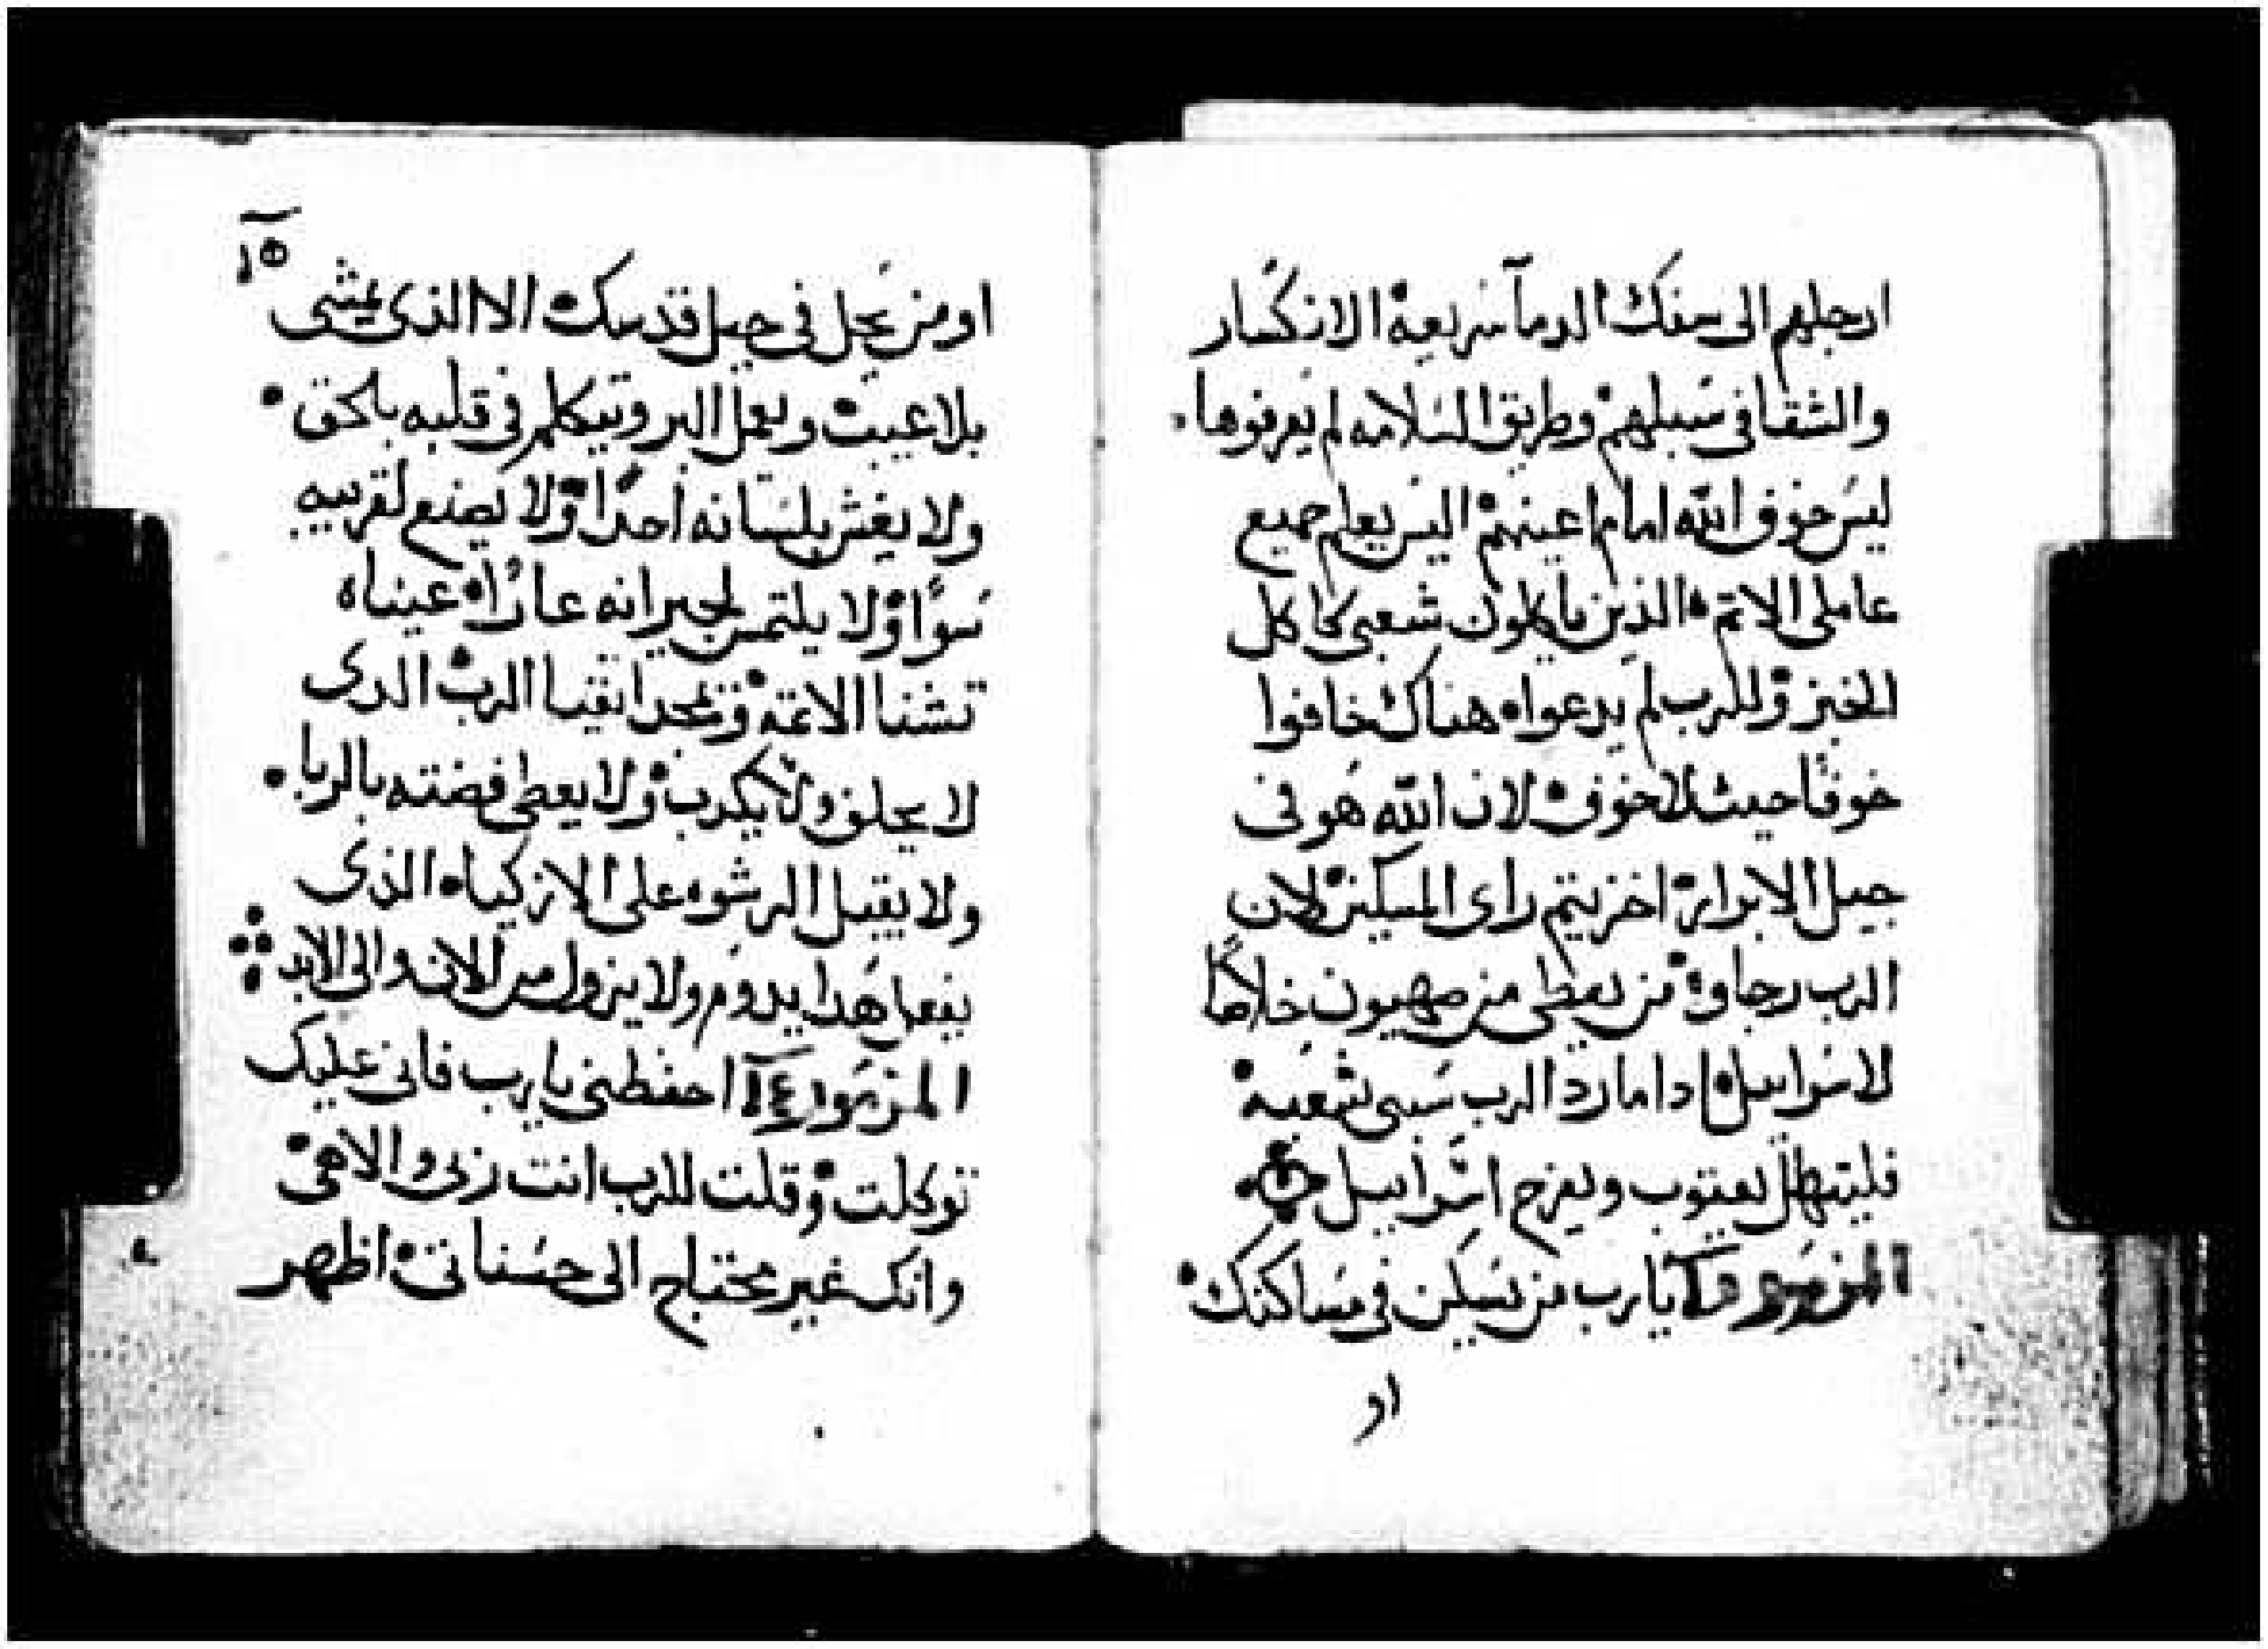 ارجلهم الى سفك الدمآ سريعه الانكسار
والشقا فى سبلهم وطريق السلامه لم يعرفوها
ليس خوف الله امام اعينهم اليس يعلم جميع
عاملى الاتم الذين ياكلون شعبى كاكل
الخبز وللرب لم يدعوا هناك خافوا
خوفًا حيث لا خوف لان الله هو فى
جيل الابرار اخزيتم راى المسكين لان
الرب رجاوه من يعطى من صهيون خلاصًا
لاسراييل ادا مارد الرب سبى شعبه
فليتهلل يعقوب ويفرح اسراييل
المزمور يارب من يسكن فى مساكنك
او
١٥
او من يحل فى جبل قدسك الا الذى يمشى
بلا عيب ويعمل البر ويتكلم فى قلبه بالحق
ولا يغش بلسانه احدًا ولا يصنع لقريبه
سوًا ولا يلتمس لجيرانه عارًا عيناه
تشنا الاتمه وتمجد اتقيا الرب الدى
لا يحلف ولا يكدب ولا يعطى فضته بالربا
ولا يقبل الرشوه على الازكياء الذى
يفعل هدا يدوم ولا يزول من الان والى الابد
المزمور ١٤ احفظنى يارب فانى عليك
توكلت وقلت للرب انت ربى والاهى
وانك غير محتاج الى حسناتى اظهر